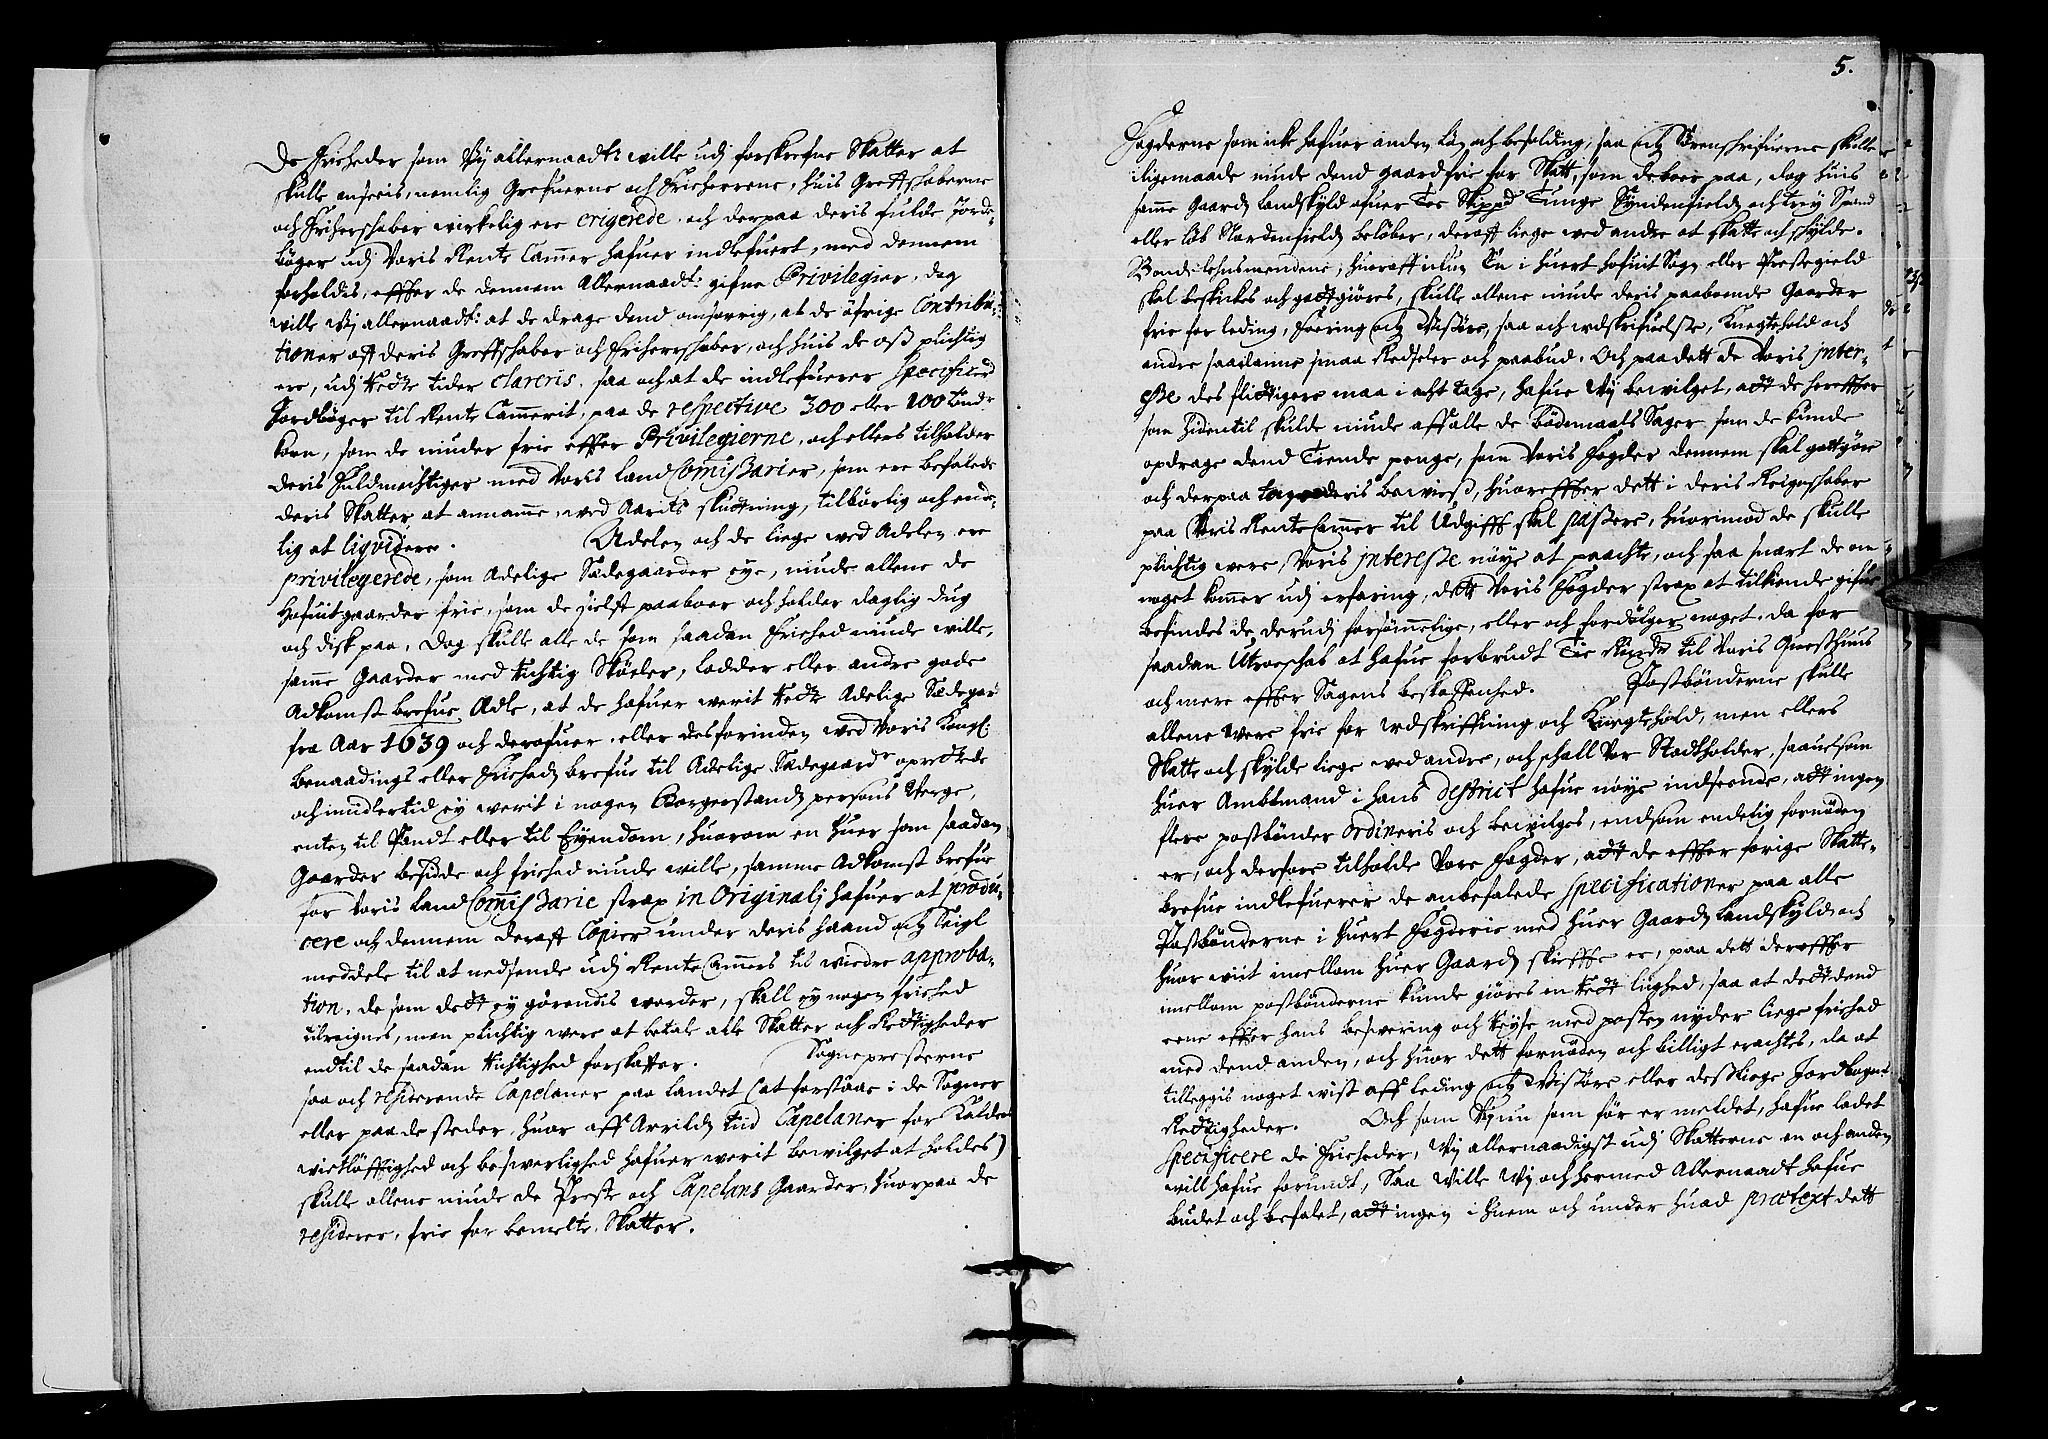 De Frieheder som Wy allernaadt: wille udj forskrefne Skatter at
skulle ansees, nemlig Grefuerne och Frieherrene, huis Grefskaberne
och Friherskaber wirkelig ere erigerede, och derpaa deris fulde Jorde-
bøger udj Voris Rente Cammer hafuer indlefuert, med dennem
forholdis, effter de dennem Allernaadt: gifne Privilegier, dog
wille Wj allernaadt: at de drage dend omsorrig, at de øfrige Contribu-
tioner aff deris Grefskaber och Friherskaber, och huis de oss plichtig
ere, udj Rette tider clareris, saa och at de indlefuerer Specificerd
Jordbøger til Rente Cammerit, paa de respective 300 eller 100 tønde
korn, som de niuder frie effter Privilegierne, och ellers tilholder
deris Fuldmechtiger med Voris Land Commissarier, som ere befalede
deris Skatter at annamme, wed Aarits slutning, tilbørlig och ende-
lig at liqvidere. Adelen och de liege wed Adelen ere
privilegerede, som Adelige Sædegaarder eye, niude allene de
Hofuitgaarder frie, som de sielf paaboer och holder daglig dug
och disk paa, Dog skulle alle de som saadan Friehed niude wille,
samme Gaarder med Richtig Skøeder, lodder eller andre gode
Adkomst brefue Adle, at de hafuer werit Rette Adelige Sædegaar
fra Aar 1639 och derofuer, eller desforinden wed Voris Kongl:
Benaadings eller Friehedz brefue til Adelige Sædegaarde oprettede
och imidlertid ey werit i nogen Borgerstandz persons Verge,
enten til Pandt eller til Eyendom, huorom en huer som saadan
Gaarder besidde och friehed niude wille, samme Adkomst brefue
for Voris Land Commissarie strax in Originalj hafuer at produ-
cere och dennem deraff Copier under deris haand och Seigl
meddele til at nedsende udj Rente Cammers til widre approba-
tion, de som dett ey gørendis worder, skall ey nogen friehed
tilreignes, men plichtig were at betale alle Skatter och Rettigheder
endtil de saadan Richtighed forskaffer. Sognepresterne
saa och residerende Capelaner paa landet (at forstaae i de Sogner
eller paa de steder, huor aff Arrilds tiid Capelaner for Kaldens
witløfftighed och beswerlighed hafuer werit bewilget at holdes)
skulle allene niude de Preste och Capelans Gaarder, huorpaa de
residerer, frie for bemelte Skatter.
5.
Fogderne som icke hafuer anden Løn och besolding, saa och Sørenschrifuerne skulle
iligemaade niude dend gaard frie for Skatt, som de boer paa, dog huis
samme Gaardz Landskyld ofuer Toe Skippd Tunge Syndenfieldz och trey Spand
eller Løb Nordenfieldz beløber, deraff liege wed andre at skatte och skylde.
Bondelehnsmendene, huoraff ickun En i huert hofuit Sogn eller Prestegield
skal beskickes och gotgiøres, skulle allene niude deris paaboende Gaarder
frie for leding, Foering och Wisøre, saa och udskrifuelse, Knegtehold och
andre saadanne smaa Redseler och paabud. Och paa dett de Voris Inter-
esse des flittigere maa i acht tage, hafue Wy bewilget, att de hereffter
som hidentil skulde niude aff alle de Bødemaals Sager som de kunde
opdrage dend Tiende penge, som Voris Fogder dennem skal gottgiøre
och derpaa tage deris bewiss, huoreffter dett i deris Reigenskaber
paa Voris Rente Cammer til Udgifft skal passere, huorimod de skulle
plichtig were, Voris Interesse nøye at paachte, och saa snart de om
noget kommer udj erfaring, dett Voris Fogder strax at tilkiende gifue
befindes de derudj forsømmelige, eller och fordølger noget, da for
saadan Utroeskab at hafue forbrudt Tie Rixdr til Voris Questhuus
och mere effter Sagens beskaffenhed. Postbønderne skulle
allene were frie for udskriffning och Knegtehold, men ellers
Skatte och skylde liege wed andre, och schall Vor Stadtholder, saauelsom
huer Ambtmand i hans destrict hafue nøye indseende, att ingen
flere postbønder ordineris och bewilges, end som endelig fornøden
er, och derfore tilholde Vore Fogder, att de effter forige Skatte-
brefue indlefuerer de anbefalede specificationer paa alle
Postbønderne i huert Fogderie med huer Gaardz Landskyld och
huor wiit imellom huer Gaardz skieffte er, paa dett dereffter
imellom postbønderne kunde giøres en Rett lighed, saa at dett dend
eene effter hans beswering och Reyse med posten nyder liege friehed
med dend anden, och huor dett fornøden och billigt erachtes, da at
tilleggis noget wist aff leding och Wisøre eller desslige Jordbogens
Rettigheder. Och som Wj nu som før er meldet, hafue ladet
specificere de Frieheder, Wj allernaadigst udj Skatterne en och anden
will hafue forundt, Saa Wille Wj och hermed Allernaadt hafue
budet och befalet, att ingen i huem och under huad prætext dett